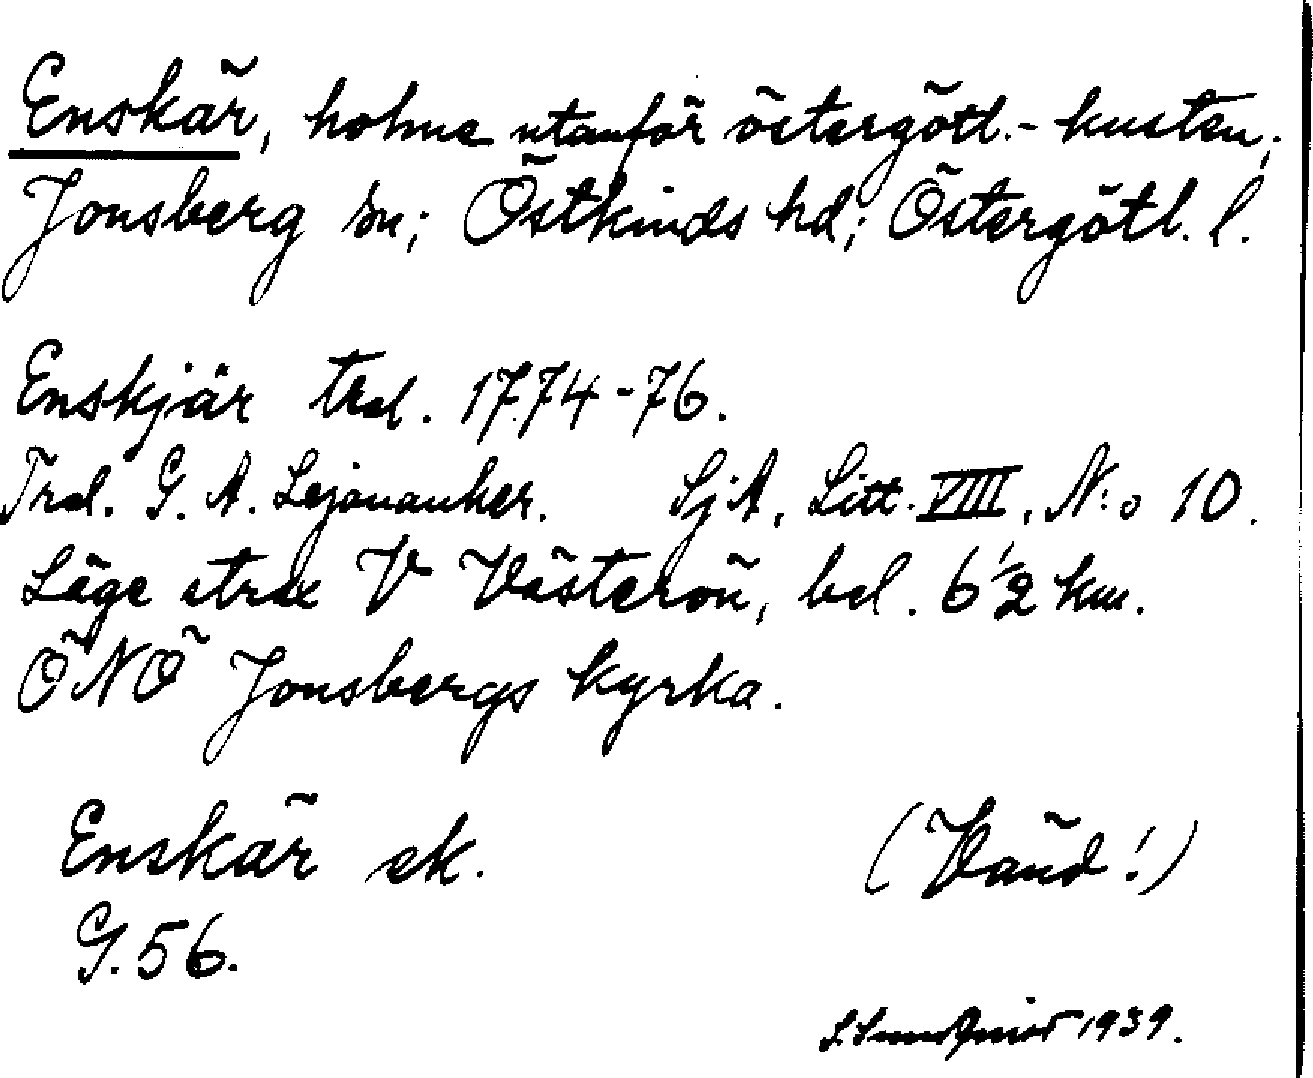 Enskär, holme utanför östergötl.-kusten;
Jonsberg sn; Östkinds hd; Östergötl. l.
Enskjär trol. 1774-76.
Trol. G. A. Lejonanker. SjA, Litt. VIII, N:o 10.
Läge strax V Västerön, bel. 6 1/2 km.
ÖNÖ Jonsbergs kyrka.
Enskär ek.
G. 56.
(Vänd!)
1939.